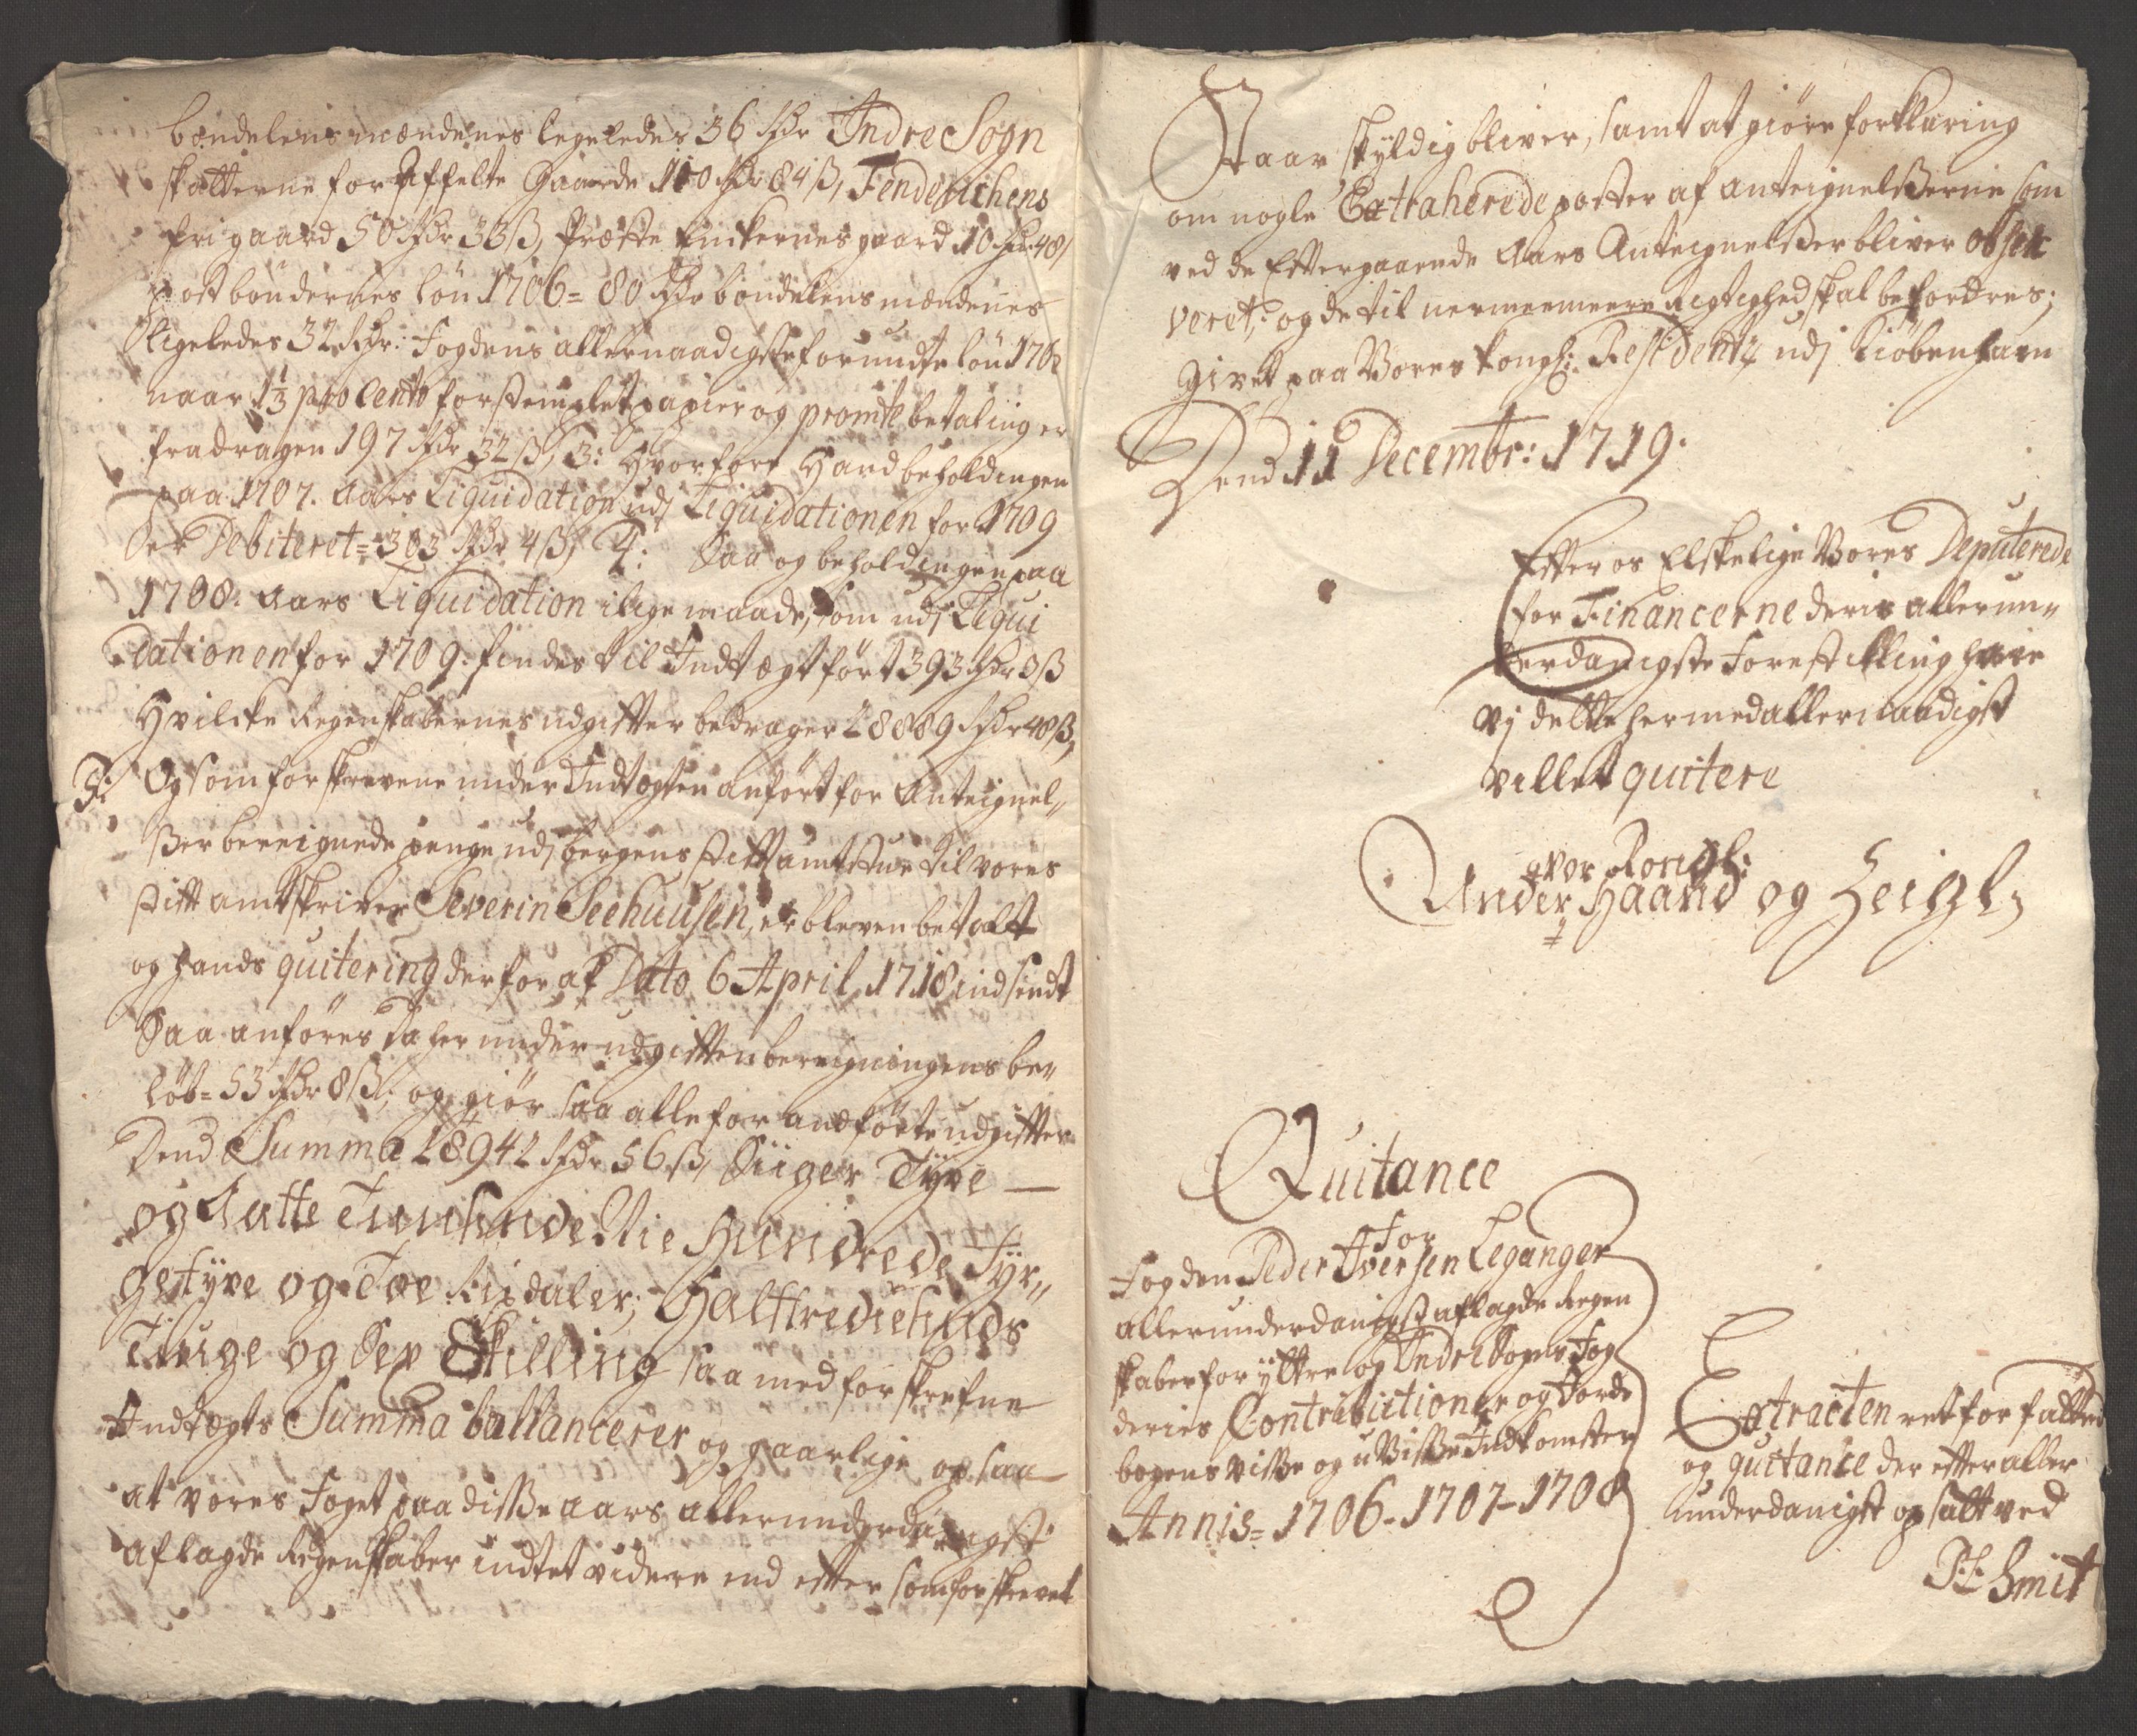 bondelensmændenes legeledes 36 Rdr Indre Sogn
skatterne for Affelte Gaarde 110 Rdr 84 ß, Fenderichens
frigaard 50 Rdr 33 ß, Præste Enckernes gaard 10 Rdr 48 ß
Postbøndernes løn 1706 = 80 Rdr bondelensmændenes
ligeledes 32 Rdr: Fogdens allernaadigste forundte løn 1706
naar 1⅓ pro Cento for Stemplet papier og promte betaling er
fradragen 197 Rdr 32 ß, 3: Hvorfore Hand beholdingen
paa 1707. Aars Liquidation udj Liquidationen for 1709
er Debiteret = 303 Rdr 4 ß, 4: Saa og beholdingen paa
1708. Aars Liquidation i lige maade, som udj Liqui
dationen for 1709. findes til Indtægt ført 393 Rdr 8 ß
Hvilcke Regenskabernes udgifter bedrager 28889 Rdr 48 ß,
5: Og som forskrevene under Indtægten anført for Anteignel„
ßer bereignede penge udj bergens Stiftamtstue til vores
Stiftamtskriver Severin Seehuusen, er bleven betalt
og hands quitering derfor af Dato 6 April 1718 indsendt
Saa anføres da her under udgiften beregningens be„
løb = 53 Rdr 8 ß; og giør saa alle for anførte udgifter
Dend Summa 28942 Rdr 56 ß, Siiger Tyve —
og Aatte Tuusinde Nie Hundrede Fyr„
getyve og Toe Rixdaler; Halftrediesinds
Tiuge og Sex Skilling saa med forskrefne
Indtægts Summa ballancerer og gaar lige op saa
at vores Foget paa disse aars allerunderdanigst
aflagde Regenskaber indtet videre end efter som forskrevet
Staar skyldig bliver, samt at giøre forklaring
om nogle Extraherede poster af anteignelßerne som
ved de Efterpaaende Aars Anteignelser bliver obser
veret; og de til nermeemeere Rigtighed skal befordres;
Givet paa Vores kongl: Residentz udj Kiøbenhafn
Dend 11 Decembr: 1719.
Efter os Elskelige Vores Deputerede
for Financerne deris allerun„
derdanigste Forestilling have
vj dette hermed allernaadigst
villet quitere
Under Vor Kongl: Haand og Zeigl,
Quitance
For
Fogden Peder Iversen Leganger
allerunderdanigst aflagde Regen
skaber for ÿttre og Indre Sogns Fog
deries Contributioner og Jorde
bogens visse og uvisse Indkomster
Annis = 1706 - 1707 - 1708
Extracten ret forfatted
og quitance der efter aller
underdanigst opsatt ved
Smit